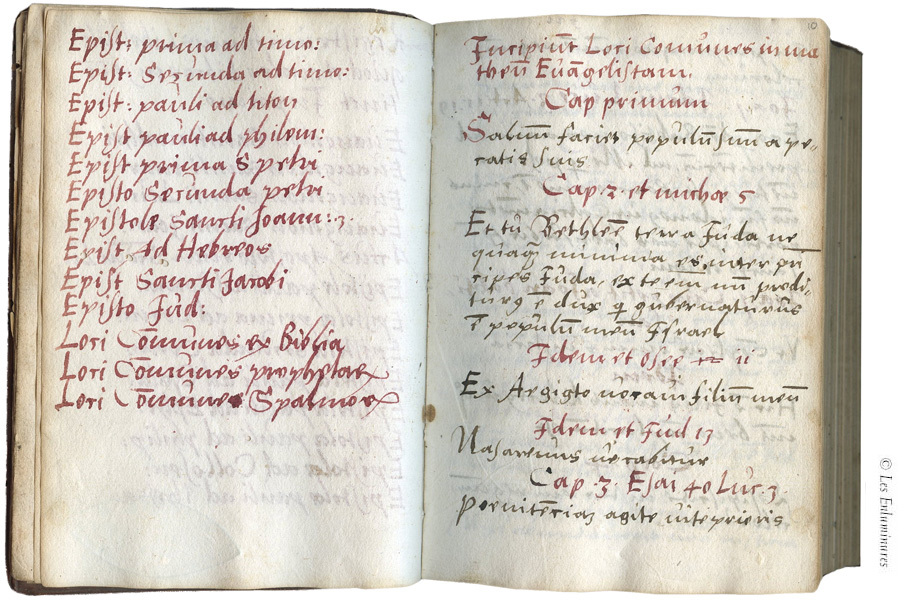 Epist: prima ad timo:
Epist: Secunda ad timo:
Epist: pauli ad titon
Epist pauli ad philem:
Epist prima S petri
Episto Secunda petri
Epistole Sancti Joann: 3.
Epist Ad Hebreos
Epist Sancti Jacobi
Episto Jud:
Loci Cōmunes ex Biblia
Loci Cōmunes prophetaꝝ
Loci Cōmunes Spalmoꝝ
10
Incipiūt Loci Comūnes in ma
theū Euāgelistam.
Cap primum
Saluū faciet populū suū a pe-
catis suis
Cap. 2. et michæ 5
Et tu Bethleē terra Juda ne
quaq̃ minima es inter prī
cipes Juda, ex te em̄ mī prodi-
turꝯ ē dux q̄ gubernaturus
ē populū meū Israel
Idem et Osee 11
Ex Aegipto uocaui filiū meū
Idem et Jud 13
Nasarenus uocabitur
Cap. 3. Esai 40 Luc. 3.
Poenitēciaʒ agite uite prioris
© Les Enluminures